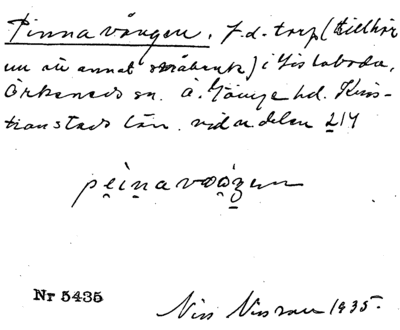 Pinnavången. f.d. torp (tillhör
nu ett annat småbruk) i Sisboboda,
Örkeneds sn. Ö. Göinge hd. Kris-
tianstads län. vid a delen 2/4
pein̥avoɷ̥ŋen
Nr 5435
Nils Nilsson 1935.